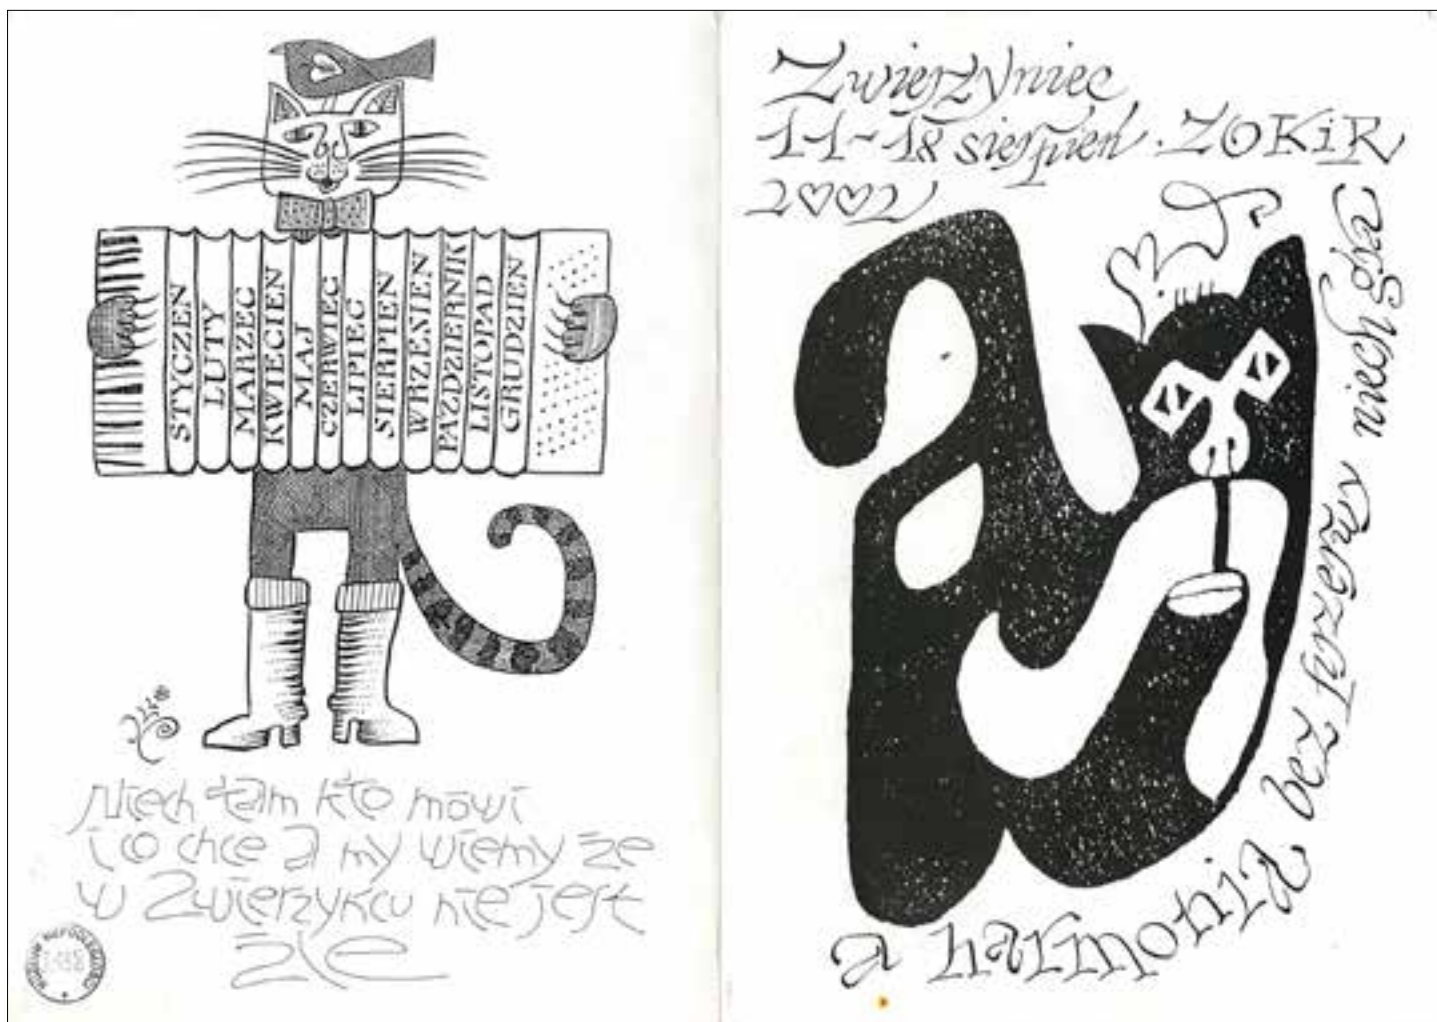 STYCZEŃ
LUTY
MARZEC
KWIECIEŃ
MAJ
CZERWIEC
LIPIEC
SIERPIEŃ
WRZESIEŃ
PAŹDZIERNIK
LISTOPAD
GRUDZIEŃ
Niech tam kto mówi
co chce a my wiemy że
w Zwierzyńcu nie jest
źle
Zwierzyniec
11-18 sierpień . ZOKiR
2002
a harmonia bez niech gra